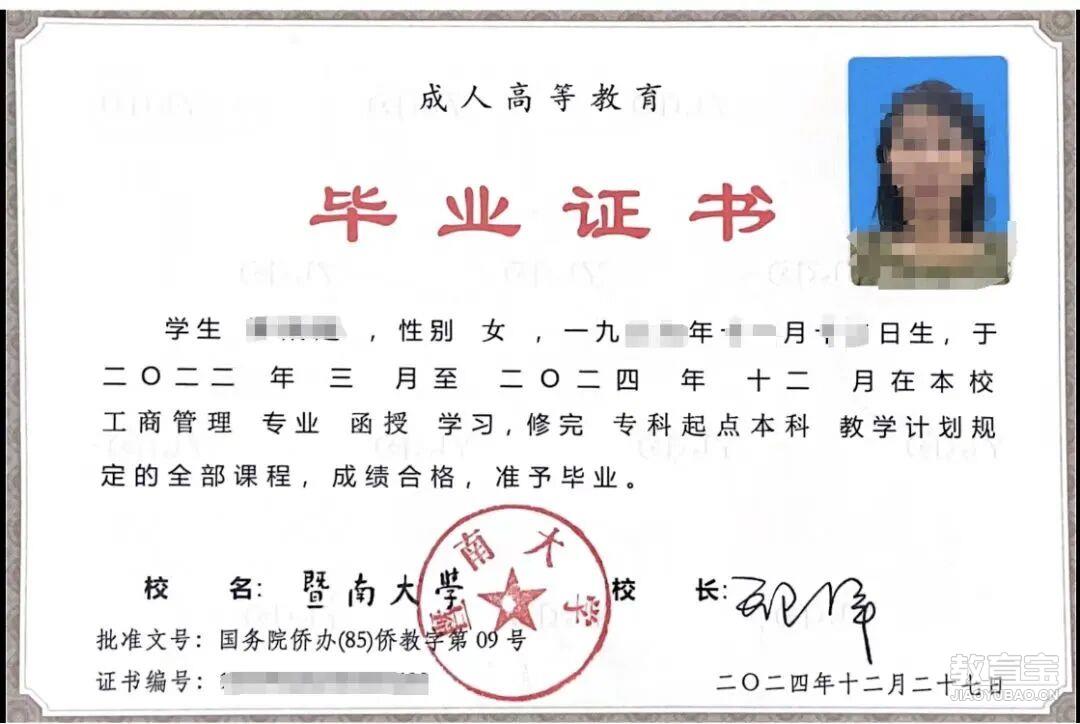 成人高等教育
毕业证书
学生 ，性别 女 ，一九 年 月 日生，于
二〇二二 年 三 月至 二〇二四 年 十二 月在本校
工商管理 专业 函授 学习，修完 专科起点本科 教学计划规
定的全部课程，成绩合格，准予毕业。
校 名：暨南大學
校 长：
暨南大学
批准文号：国务院侨办(85)侨教字第 09 号
证书编号：
二〇二四年十二月二十七日
教育宝
JIAOYUBAO.CN